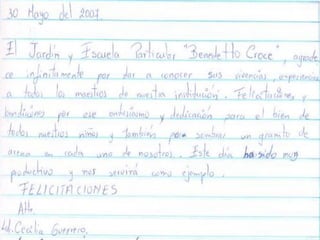 30 Mayo del 2007.
El Jardín y Escuela Particular "Benedetto Croce", agrade
ce infinitamente por dar a conocer sus vivencias, experiencias
a todos los maestros de nuestra institución. Felicitaciones y
bendiciones por ese entusiasmo y dedicación para el bien de
todos nuestros niños y también por sembrar un granito de
arena en cada uno de nosotros. Este día ha sido muy
productivo y nos servirá como ejemplo.
FELICITACIONES
Att.
Ld. Cecilia Guerrero,